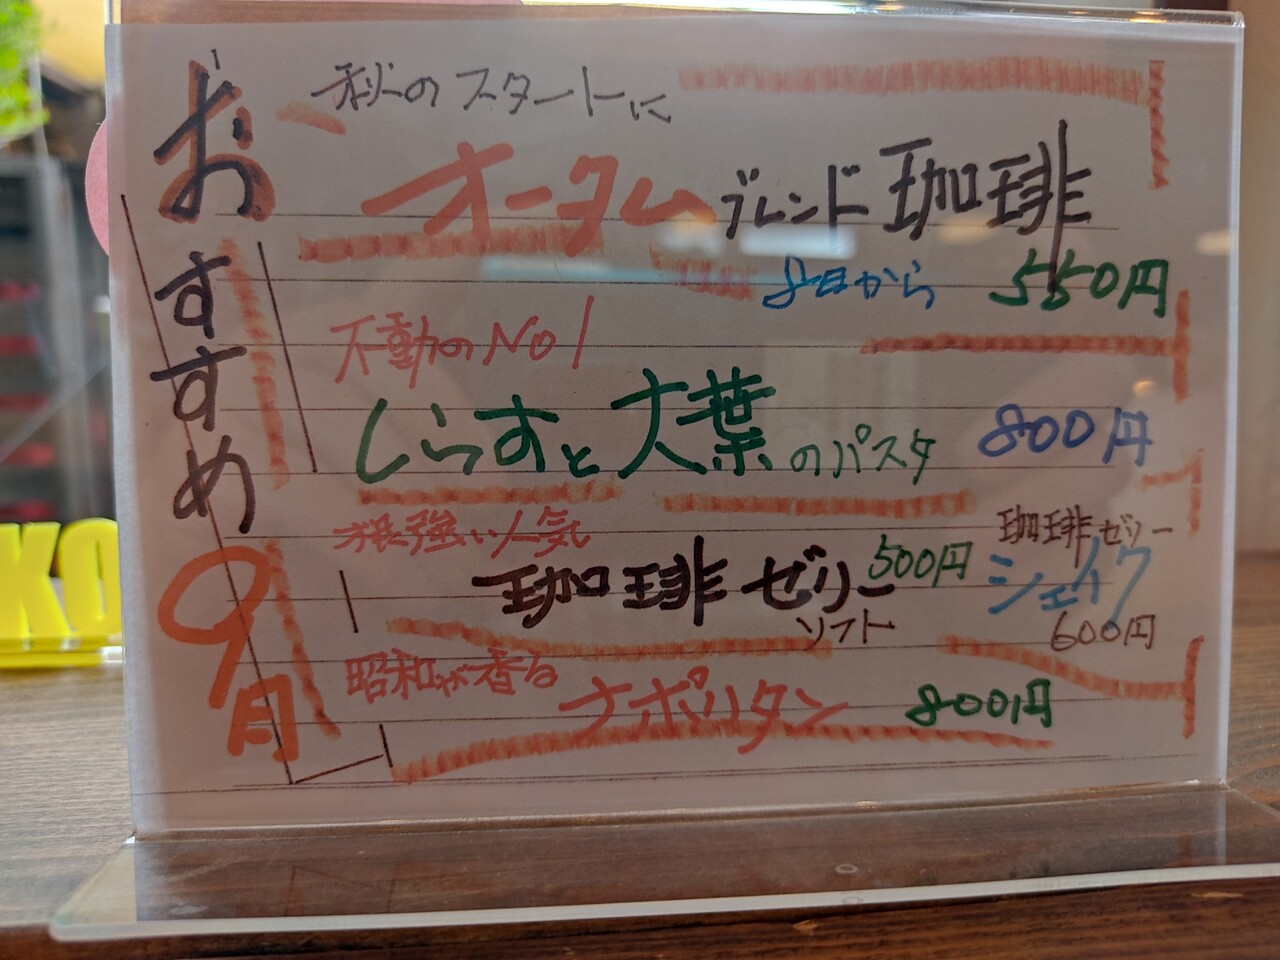 おすすめ
9月
秋のスタートに
オータムブレンド珈琲
8日から 550円
不動のNo1
しらすと大葉のパスタ 800円
根強い人気
珈琲ゼリー 500円
ソフト
珈琲ゼリー
シェイク
600円
昭和が香る
ナポリタン 800円
KO